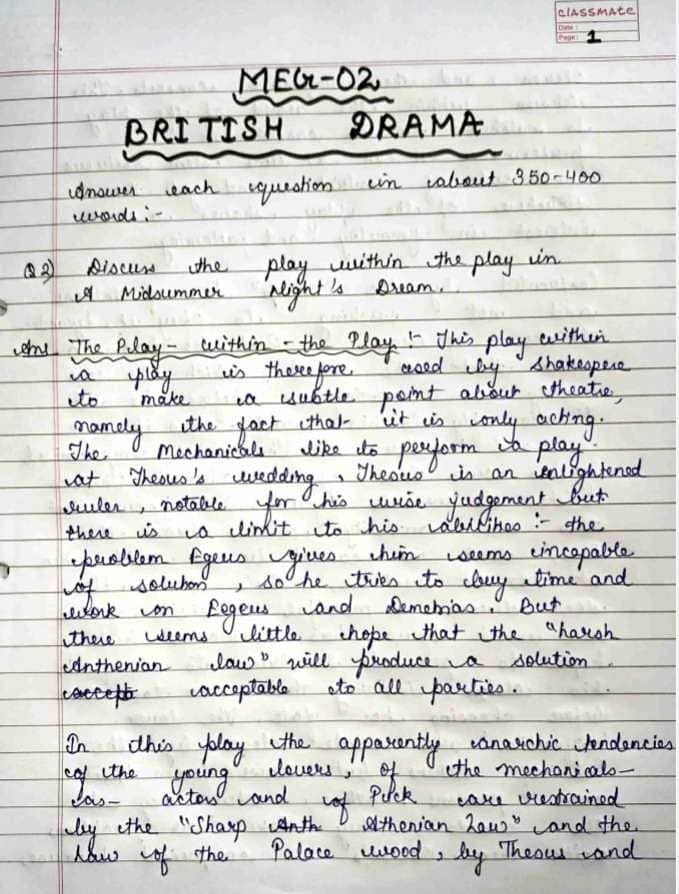 classmate
Date :
Page : 1
MEG-02
BRITISH DRAMA
Answer each question in about 350-400
words :-
Q 2) Discuss the play within the play in
A Midsummer Night's Dream.
Ans The Play- within - the Play :- This play within
a play is therefore used by Shakespere
to make a subtle point about theatre,
namely the fact that it is only acting.
The Mechanicals like to perform a play
at Thesus's wedding, Thesus is an enlightened
ruler, notable for his wise judgement but
there is a limit to his abilities :- the
problem Egeus gives him seems incapable
of solution, so he tries to buy time and
work on Eegeus and Demetrias. But
there seems little hope that the "harsh
Anthenian law" will produce a solution
accepta acceptable to all parties.
In this play the apparently anarchic tendencies
of the young lovers, of the mechanicals-
as- actors and of Puck are restrained
by the "Sharp Anth Athenian Law" and the
Law of the Palace wood, by Thesus and